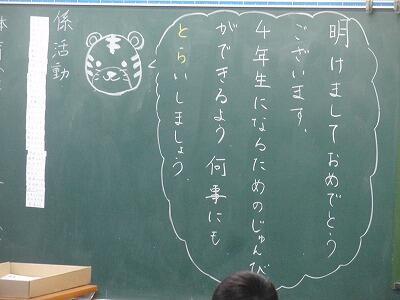 明けましておめでとう
ございます。
4年生になるためのじゅんび
ができるよう、何事にも
とらいしましょう。
係活動